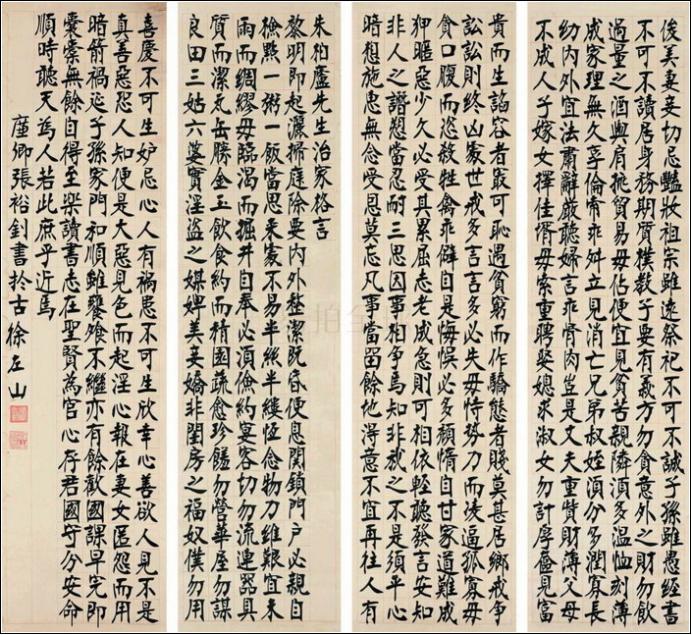 朱柏廬先生治家格言
黎明即起灑掃庭除要內外整潔既昏便息関鎖門户必親自
檢點一粥一飯當思来處不易半絲半縷恆念物力維艱宜未
雨而綢繆毋臨渴而掘井自奉必須儉約宴客切勿流連器具
質而潔瓦缶勝金玉飲食約而精園蔬愈珍饈勿營華屋勿謀
良田三姑六婆實淫盜之媒婢美妾嬌非閨房之福奴僕勿用
俊美妻妾切忌豔妝祖宗雖遠祭祀不可不誠子孫雖愚經書
不可不讀居身務期質樸教子要有義方勿貪意外之財勿飲
過量之酒與肩挑貿易毋佔便宜見貧苦親隣須多温恤刻薄
成家理無久享倫常乖舛立見消亡兄弟叔姪須分多潤寡長
幼內外宜法肅辭嚴聽婦言乖骨肉豈是丈夫重貲財薄父母
不成人子嫁女擇佳壻毋索重聘娶媳求淑女勿計厚奩見富
貴而生諂容者最可恥遇貧窮而作驕態者賤莫甚居鄉戒争
訟訟則終凶處世戒多言言多必失毋恃勢力而凌逼孤寡毋
貪口腹而恣殺牲禽乖僻自是悔悮必多頹惰自甘家道難成
狎暱惡少久必受其累屈志老成急則可相依輕聽發言安知
非人之譖愬當忍耐三思因事相争焉知非我之不是須平心
暗想施惠無念受恩莫忘凡事當留餘地得意不宜再往人有
喜慶不可生妒忌心人有禍患不可生欣幸心善欲人見不是
真善惡恐人知便是大惡見色而起淫心報在妻女匿怨而用
暗箭禍延子孫家門和順雖饔飧不繼亦有餘歡國課早完即
囊橐無餘自得至樂讀書志在聖賢為官心存君國守分安命
順時聽天為人若此庶乎近焉
廑卿張裕釗書於古徐左山